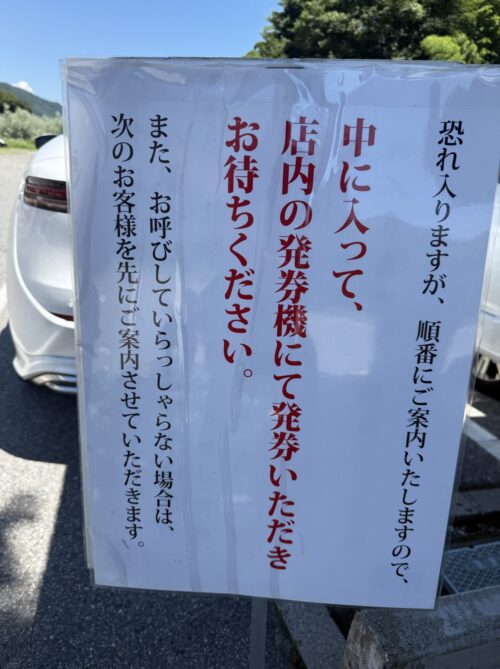 恐れ入りますが、順番にご案内いたしますので、
中に入って、
店内の発券機にて発券いただき
お待ちください。
また、お呼びしていらっしゃらない場合は、
次のお客様を先にご案内させていただきます。